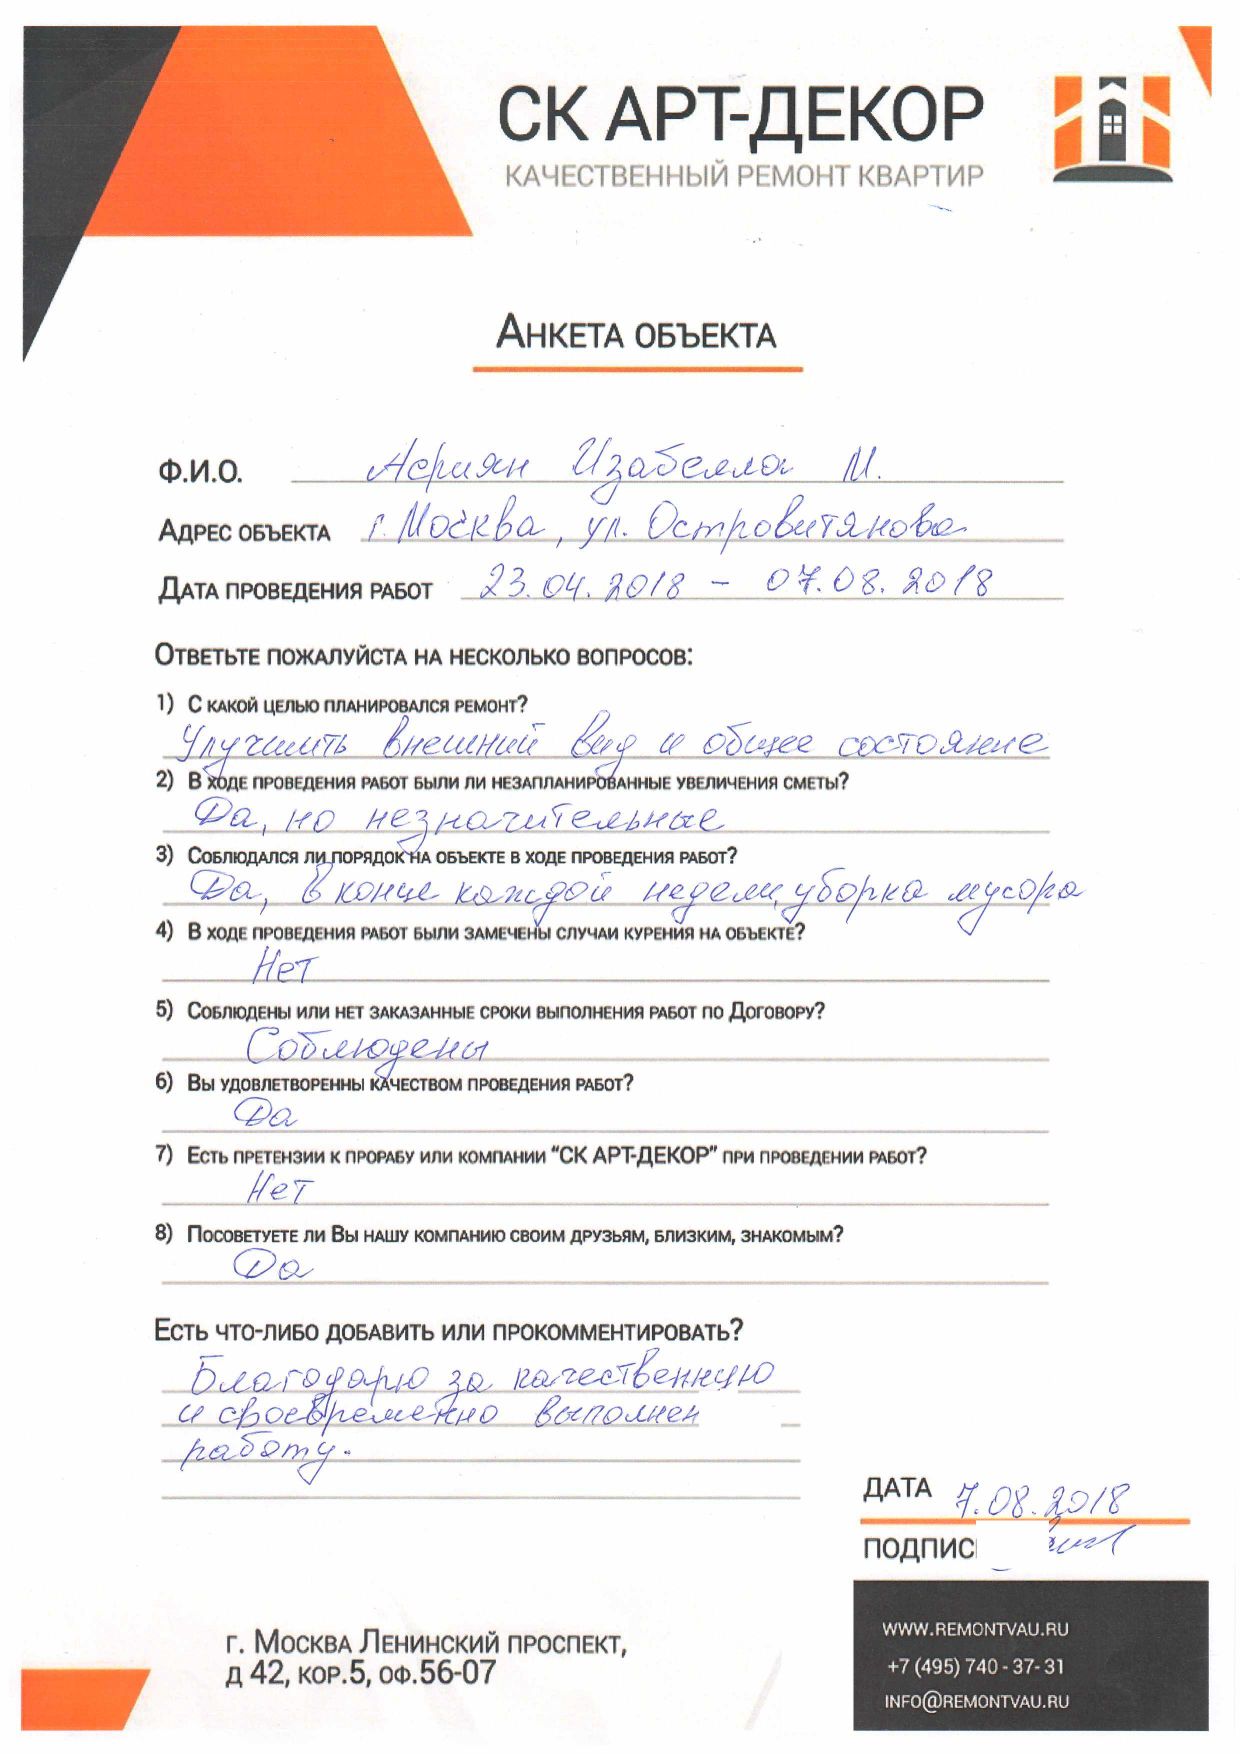 СК АРТ-ДЕКОР
КАЧЕСТВЕННЫЙ РЕМОНТ КВАРТИР
АНКЕТА ОБЪЕКТА
Ф.И.О. Асриян Изабелла М.
АДРЕС ОБЪЕКТА г. Москва, ул. Островитянова
ДАТА ПРОВЕДЕНИЯ РАБОТ 23.04.2018 - 07.08.2018
ОТВЕТЬТЕ ПОЖАЛУЙСТА НА НЕСКОЛЬКО ВОПРОСОВ:
1) С КАКОЙ ЦЕЛЬЮ ПЛАНИРОВАЛСЯ РЕМОНТ?
Улучшить внешний вид и общее состояние
2) В ХОДЕ ПРОВЕДЕНИЯ РАБОТ БЫЛИ ЛИ НЕЗАПЛАНИРОВАННЫЕ УВЕЛИЧЕНИЯ СМЕТЫ?
Да, но незначительные
3) СОБЛЮДАЛСЯ ЛИ ПОРЯДОК НА ОБЪЕКТЕ В ХОДЕ ПРОВЕДЕНИЯ РАБОТ?
Да, в конце каждой недели, уборка мусора
4) В ХОДЕ ПРОВЕДЕНИЯ РАБОТ БЫЛИ ЗАМЕЧЕНЫ СЛУЧАИ КУРЕНИЯ НА ОБЪЕКТЕ?
Нет
5) СОБЛЮДЕНЫ ИЛИ НЕТ ЗАКАЗАННЫЕ СРОКИ ВЫПОЛНЕНИЯ РАБОТ ПО ДОГОВОРУ?
Соблюдены
6) ВЫ УДОВЛЕТВОРЕННЫ КАЧЕСТВОМ ПРОВЕДЕНИЯ РАБОТ?
Да
7) ЕСТЬ ПРЕТЕНЗИИ К ПРОРАБУ ИЛИ КОМПАНИИ "СК АРТ-ДЕКОР" ПРИ ПРОВЕДЕНИИ РАБОТ?
Нет
8) ПОСОВЕТУЕТЕ ЛИ ВЫ НАШУ КОМПАНИЮ СВОИМ ДРУЗЬЯМ, БЛИЗКИМ, ЗНАКОМЫМ?
Да
ЕСТЬ ЧТО-ЛИБО ДОБАВИТЬ ИЛИ ПРОКОММЕНТИРОВАТЬ?
Благодарю за качественную
и своевременно выполнен
работу.
ДАТА 7.08.2018
ПОДПИС
г. МОСКВА ЛЕНИНСКИЙ ПРОСПЕКТ,
Д 42, КОР.5, ОФ.56-07
WWW.REMONTVAU.RU
+7 (495) 740 - 37- 31
INFO@REMONTVAU.RU